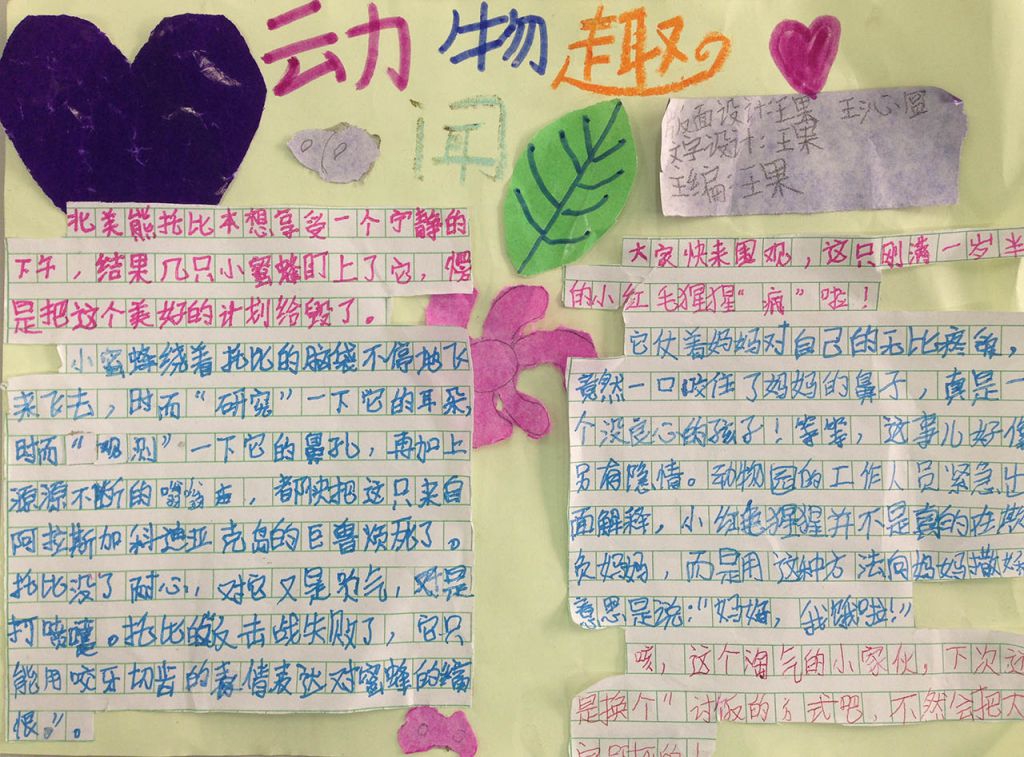 动物趣
闻
版面设计:王果 王沁
文字设计:王果
主编:王果
北美熊托比本想享受一个宁静的
下午,结果几只小蜜蜂盯上了它,愣
是把这个美好的计划给毁了。
小蜜蜂绕着托比的脑袋不停地飞
来飞去,时而“研究”一下它的耳朵,
时而“观测”一下它的鼻孔,再加上
源源不断的嗡嗡声,都快把这只来自
阿拉斯加科迪亚克岛的巨兽烦死了。
托比没了耐心,对它又是吹气,对是
打喷嚏。托比的反击战失败了,它只
能用咬牙切齿的表情表达对蜜蜂的痛
恨。”。
大家快来围观,这只刚满一岁半
的小红毛猩猩“疯”啦!
它仗着妈妈对自己的无比疼爱,
竟然一口咬住了妈妈的鼻子,真是一
个没良心的孩子!等等,这事儿好像
另有隐情。动物园的工作人员紧急出
面解释,小红毛猩猩并不是真的在欺
负妈妈,而是用这种方法向妈妈撒娇
意思是说:“妈妈,我饿啦!”
咳,这个淘气的小家伙,下次还
是换个”讨饭的方式吧,不然会把大
家吓坏的!